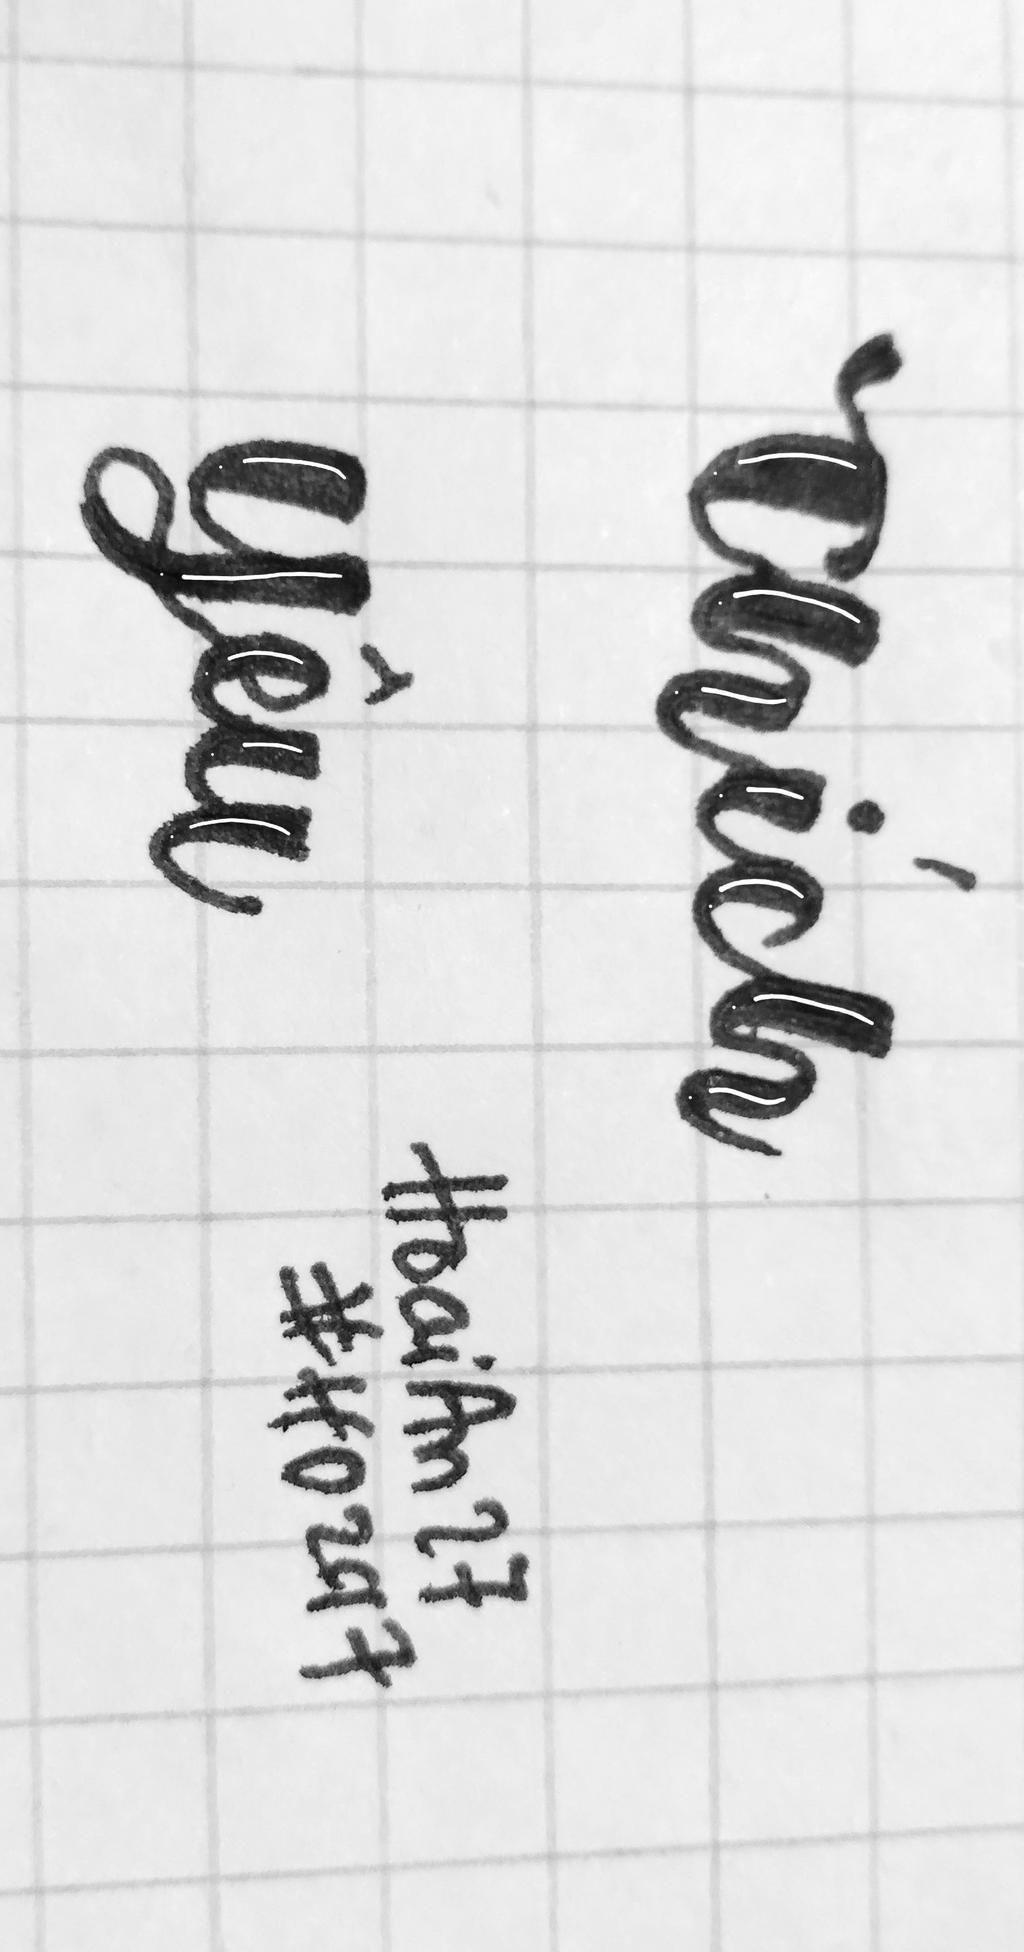 Thích
yêu
HoaiAn27
#Hoza7